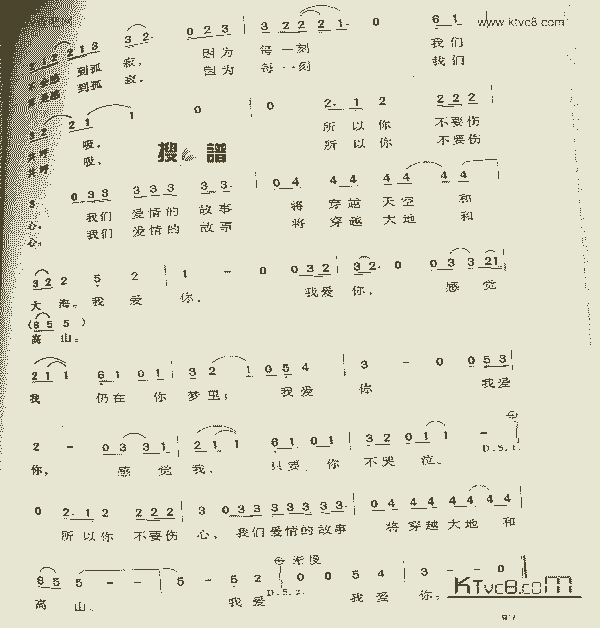 0 2 3 3 2 2 2 1· 0 6 1 www.ktvc8.com
到孤 寂， 因为 每一刻 我们
到孤 寂。 因为 每一刻 我们
2 1 1 0 0 2· 1 2 2 2 2
吸。 所以你 不要伤
吸， 搜 谱 所以你 不要伤
0 3 3 3 3 3 3 3· 0 4 4 4 4 4 4 4
心， 我们 爱情的 故事 将 穿越 天空 和
心。 我们 爱情的 故事 将 穿越 大地 和
3 2 2 5 2 1 - 0 0 3 2 3 2· 0 0 3 3 2 1
大海。我 爱 你。 我爱 你， 感 觉
(6 5 5 )
高山。
2 1 1 6 1 0 1 3 2 1 0 5 4 3 - 0 0 5 3
我 仍在 你 梦里； 我爱 你 我爱
2 - 0 3 3 1 2 1 1 6 1 0 1 3 2 0 1 1 -
你， 感 觉 我， 只要 你 不哭 泣。 D.S.1.
0 2· 1 2 2 2 2 3 0 3 3 3 3 3 3 3· 0 4 4 4 4 4 4 4
所以你 不要伤 心，我们爱情的故事 将穿越大地 和
渐慢
6 5 5 - - 5 - 5 2 0 0 5 4 3 - - 0
D.S.2.
高 山。 我爱 我爱 你。
KTvc8.com